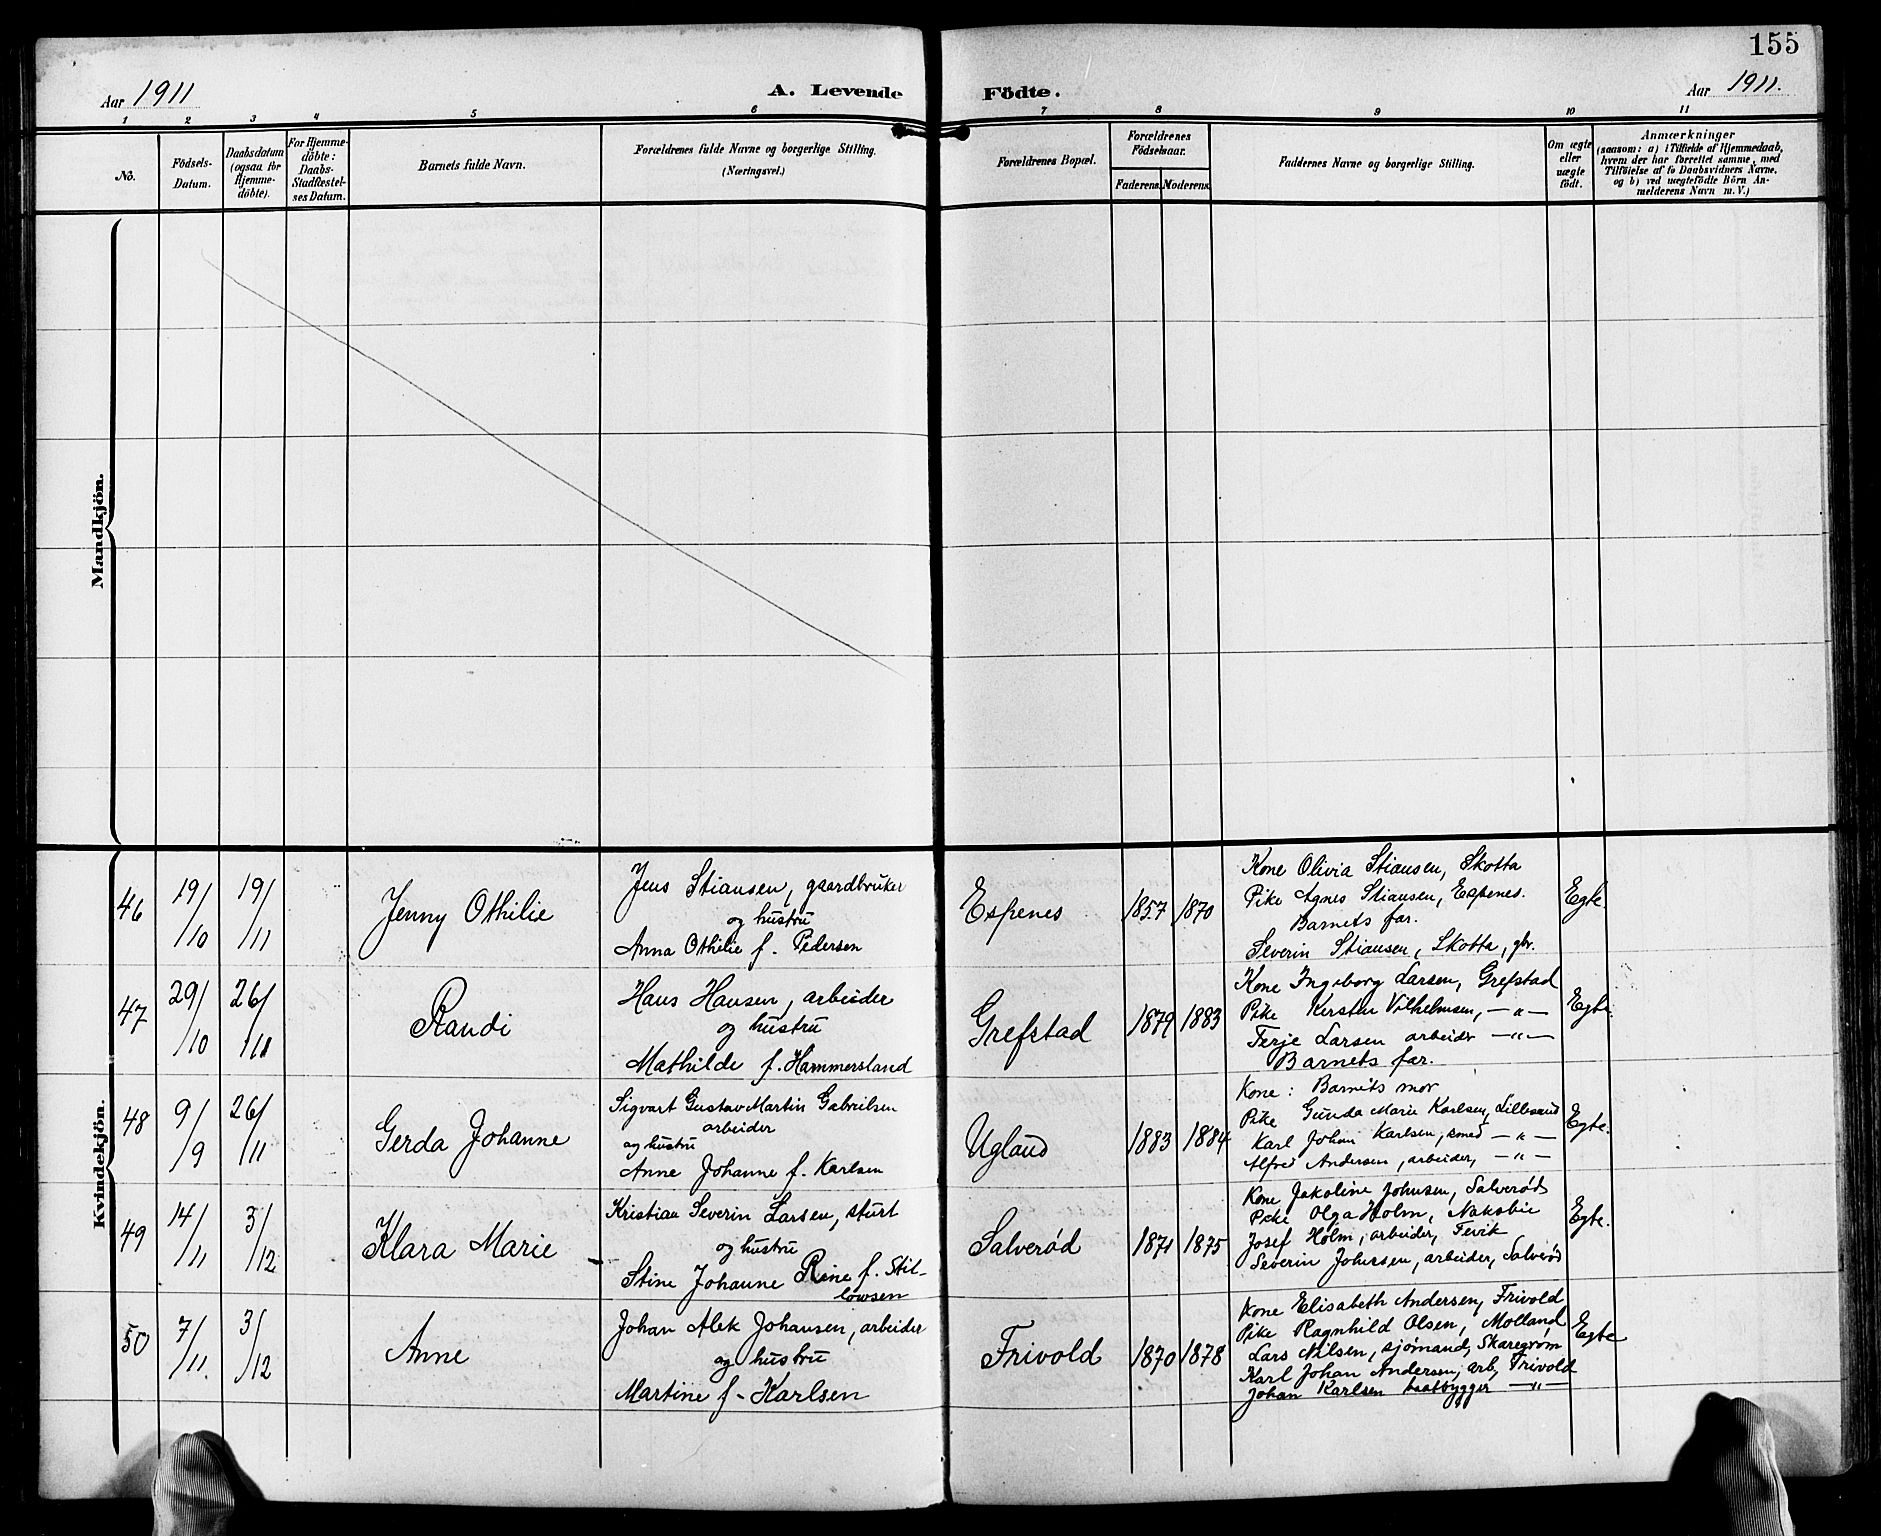 155
Aar 1911
A. Levende
Födte.
Aar 1911.
1 2 3 4 5 6 7 8 9 10 11
No.
Födsels-
Datum.
Daabsdatum
(ogsaa for
Hjemme-
döbte).
For Hjemme-
döbte:
Daabs-
Stadfæstel-
ses Datum.
Barnets fulde Navn.
Forældrenes fulde Navne og borgerlige Stilling.
(Næringsvei.)
Forældrenes Bopæl.
Forældrenes
Födselsaar.
Faderens. Moderens.
Faddernes Navne og borgerlige Stilling.
Om ægte
eller
uægte
födt.
Anmærkninger
(saasom: a) i Tilfælde af Hjemmedaab,
hvem der har forrettet samme, med
Tilföielse af to Daabsvidners Navne,
og b) ved uægtefödte Börn An-
melderens Navn m. V.)
Mandkjön.
Kvindekjön.
46
19/10
19/11
Jenny Othilie
Jens Stiansen, gaardbruker
og hustru
Anna Othilie f. Pedersen
Espenes
1857
1870
Kone Olivia Stiansen, Skotta
Pike Agnes Stiansen, Espenes.
Barnets far.
Severin Stiansen, Skotta, gbr.
Egte.
47
29/10
26/11
Randi
Hans Hansen, arbeider
og hustru
Mathilde f. Hammersland
Grefstad
1879
1883
Kone Ingeborg Larsen, Grefstad
Pike Kersten Vilhelmsen, —"—
Terje Larsen arbeider —"—
Barnets far.
Egte
48
9/9
26/11
Gerda Johanne
Sigvart Gustav Martin Gabrielsen
arbeider
og hustru
Anne Johanne f. Karlsen
Ugland
1883
1884
Kone: Barnets mor
Pike Gunda Marie Karlsen, Lillesand
Karl Johan Karlsen, smed —"—
Alfred Andersen, arbeider, —"—
Egte.
49
14/11
3/12
Klara Marie
Kristian Severin Larsen, sturt
og hustru
Stine Johanne Rine f. Stil-
lowsen
Salverød
1871
1875
Kone Jakoline Johnsen, Salverød
Pike Olga Holm,
Josef Holm, arbeider, Fevik
Severin Johnsen, arbeider, Salverød
Egte.
50
7/11.
3/12
Anne
Johan Alek Johansen, arbeider
og hustru
Martine f. Karlsen
Frivold
1870
1878
Kone Elisabeth Andersen, Frivold
Pike Ragnhild Olsen, Molland
Lars Nilsen, sjømand, Skaregrøm
Karl Johan Andersen, arb, Frivold
Johan Karlsen baatbygger —"—
Egte